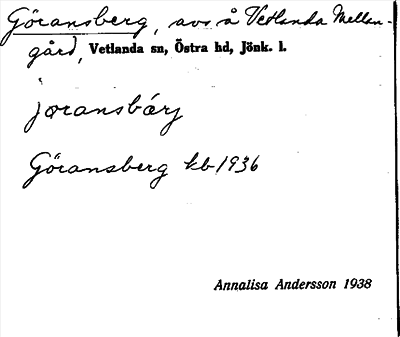 Göransberg, avs å Vetlanda Mellan-
gård, Vetlanda sn, Östra hd, Jönk. l.
jøransbärj
Göransberg kb 1936
Annalisa Andersson 1938